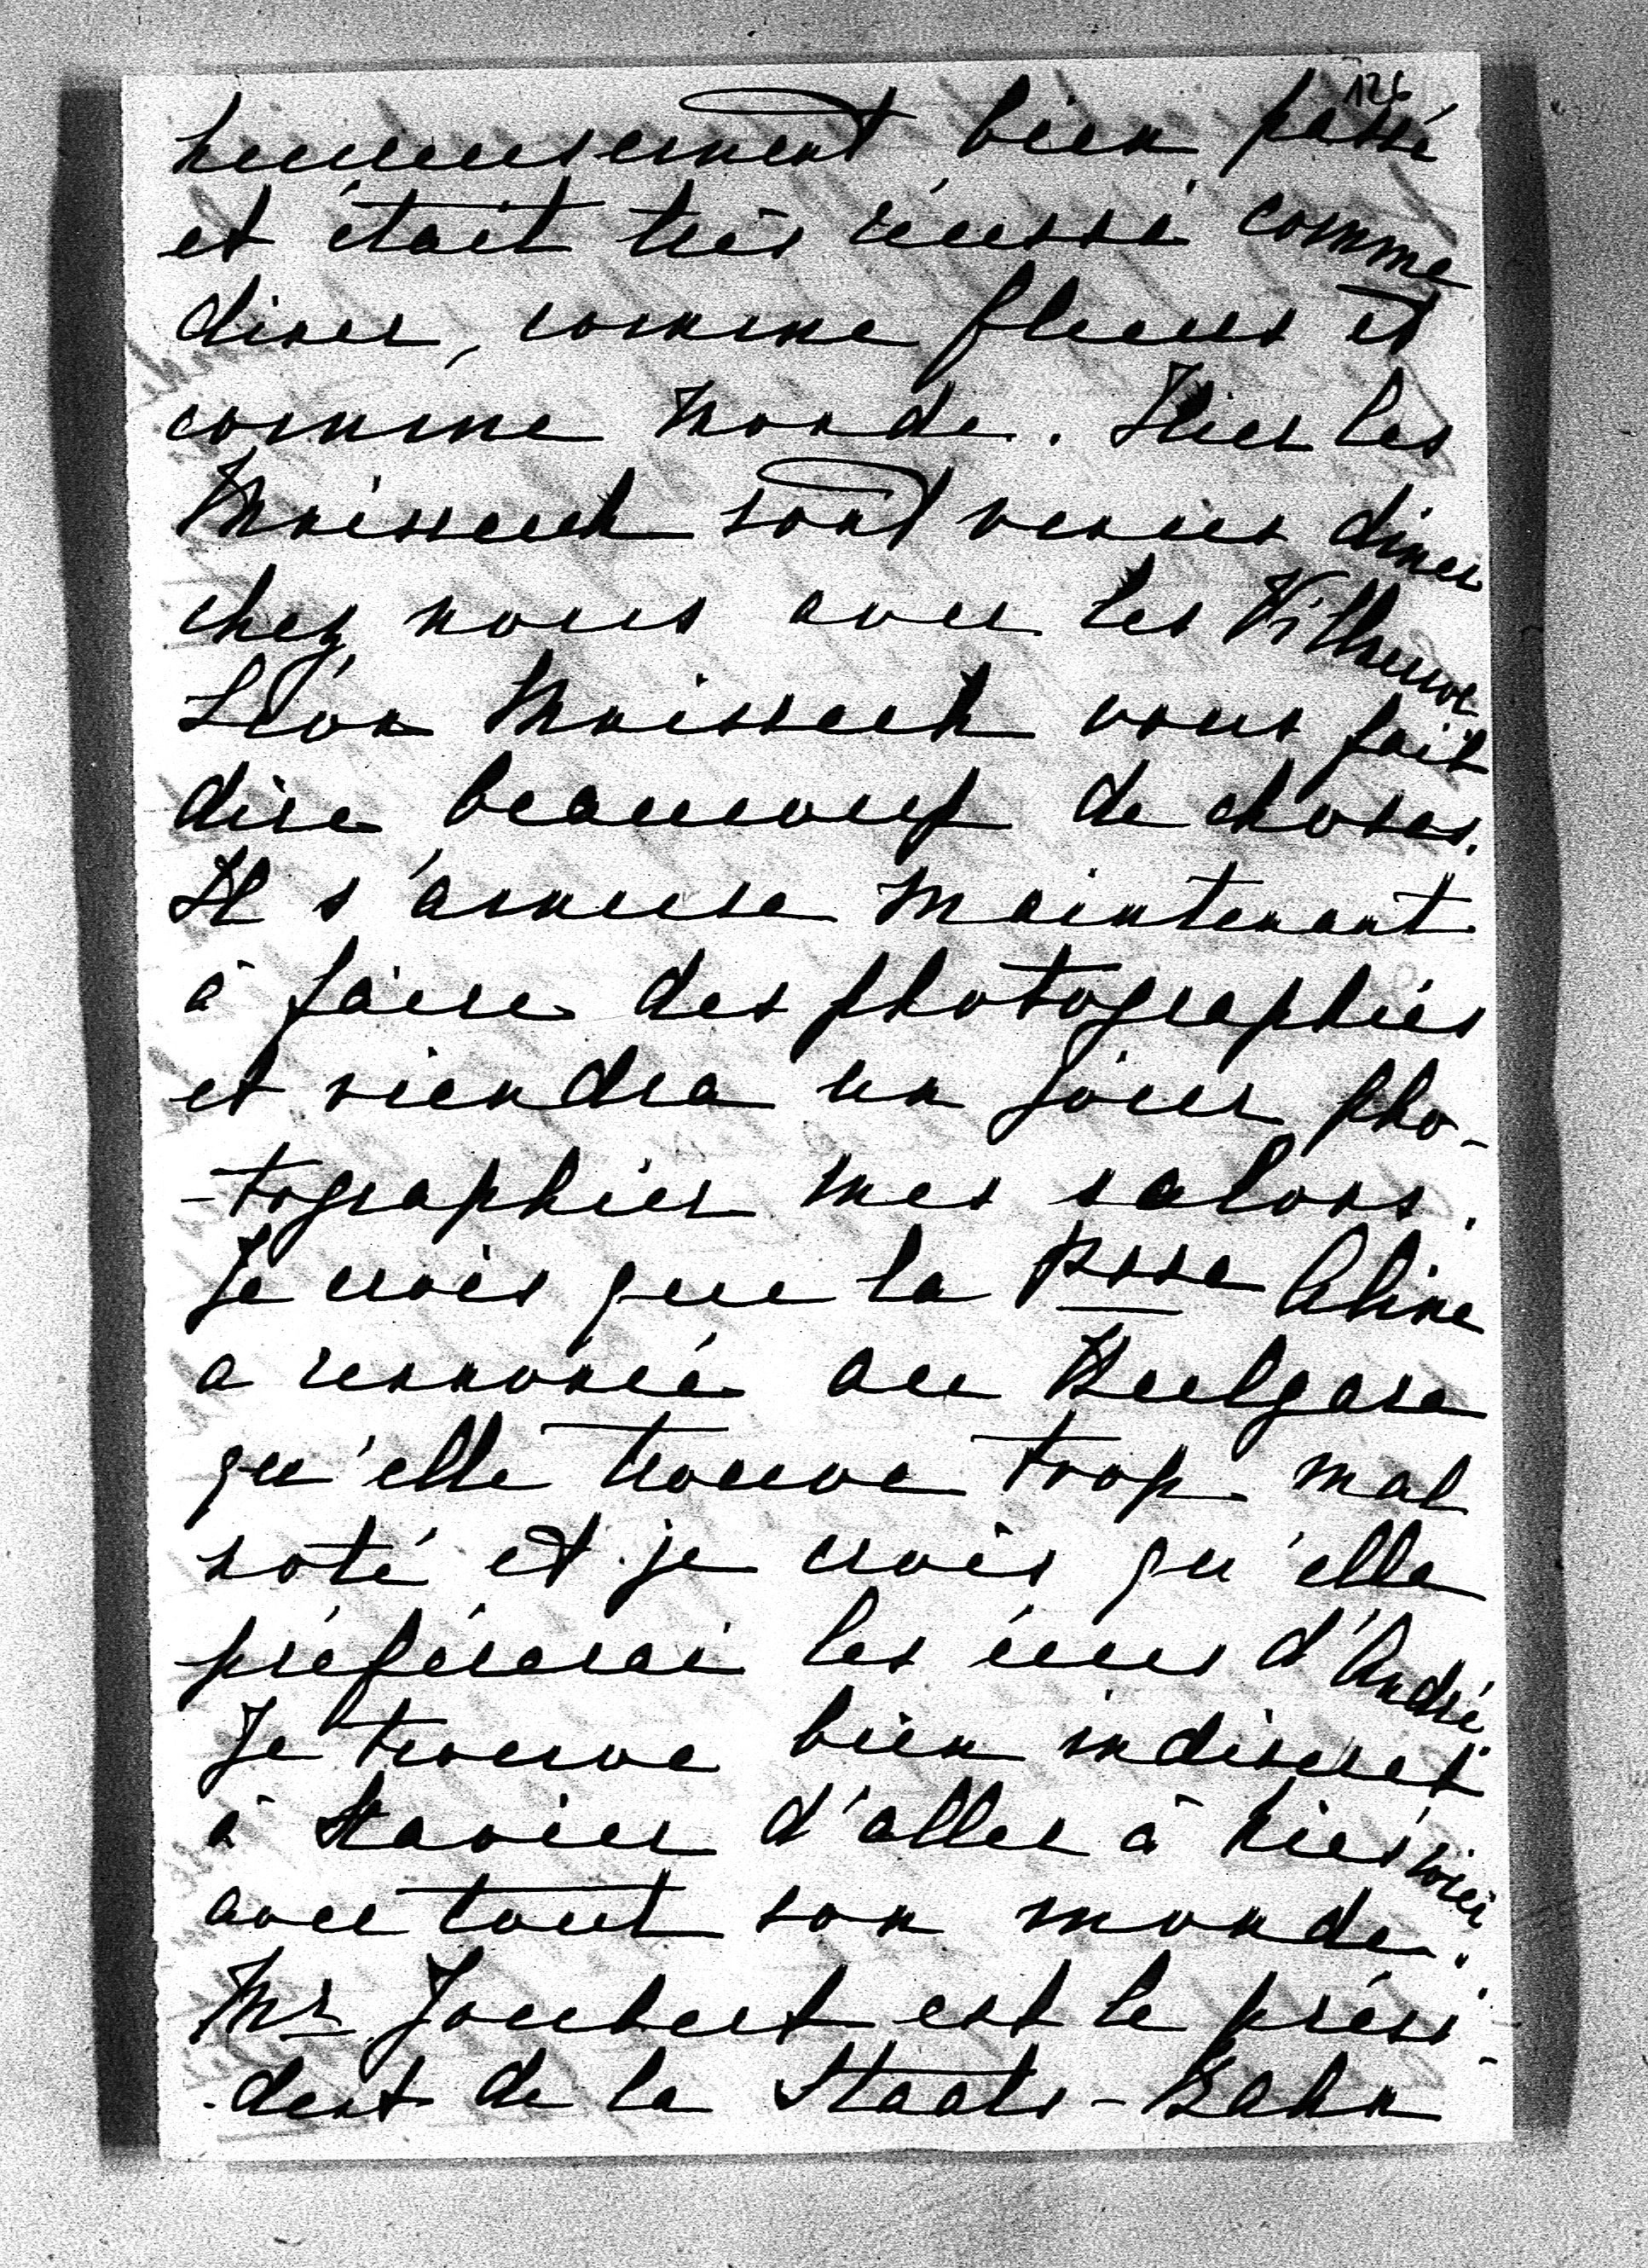 126
heureusement bien passé
et était très réussi comme
diner, comme fleurs et
comme monde. Hier les
Moisseeh sont venus diner
chez nous avec les Villeneuve
Léon Moisseeh vous fait
dire beaucoup de choses.
Il s'amuse maintenant
à faire des photographies
et viendra un jour pho-
-tographier mes salons.
Je crois que la Psse Aline
a renoncé au Bulgare
qu'elle trouve trop mal
noté et je crois qu'elle
préférerai les écus d'André
Je trouve bien indiscret
à Xavier d'aller à
avec tout son monde.
Mr Joubert est le prési-
-dent de la Staats-Bahn